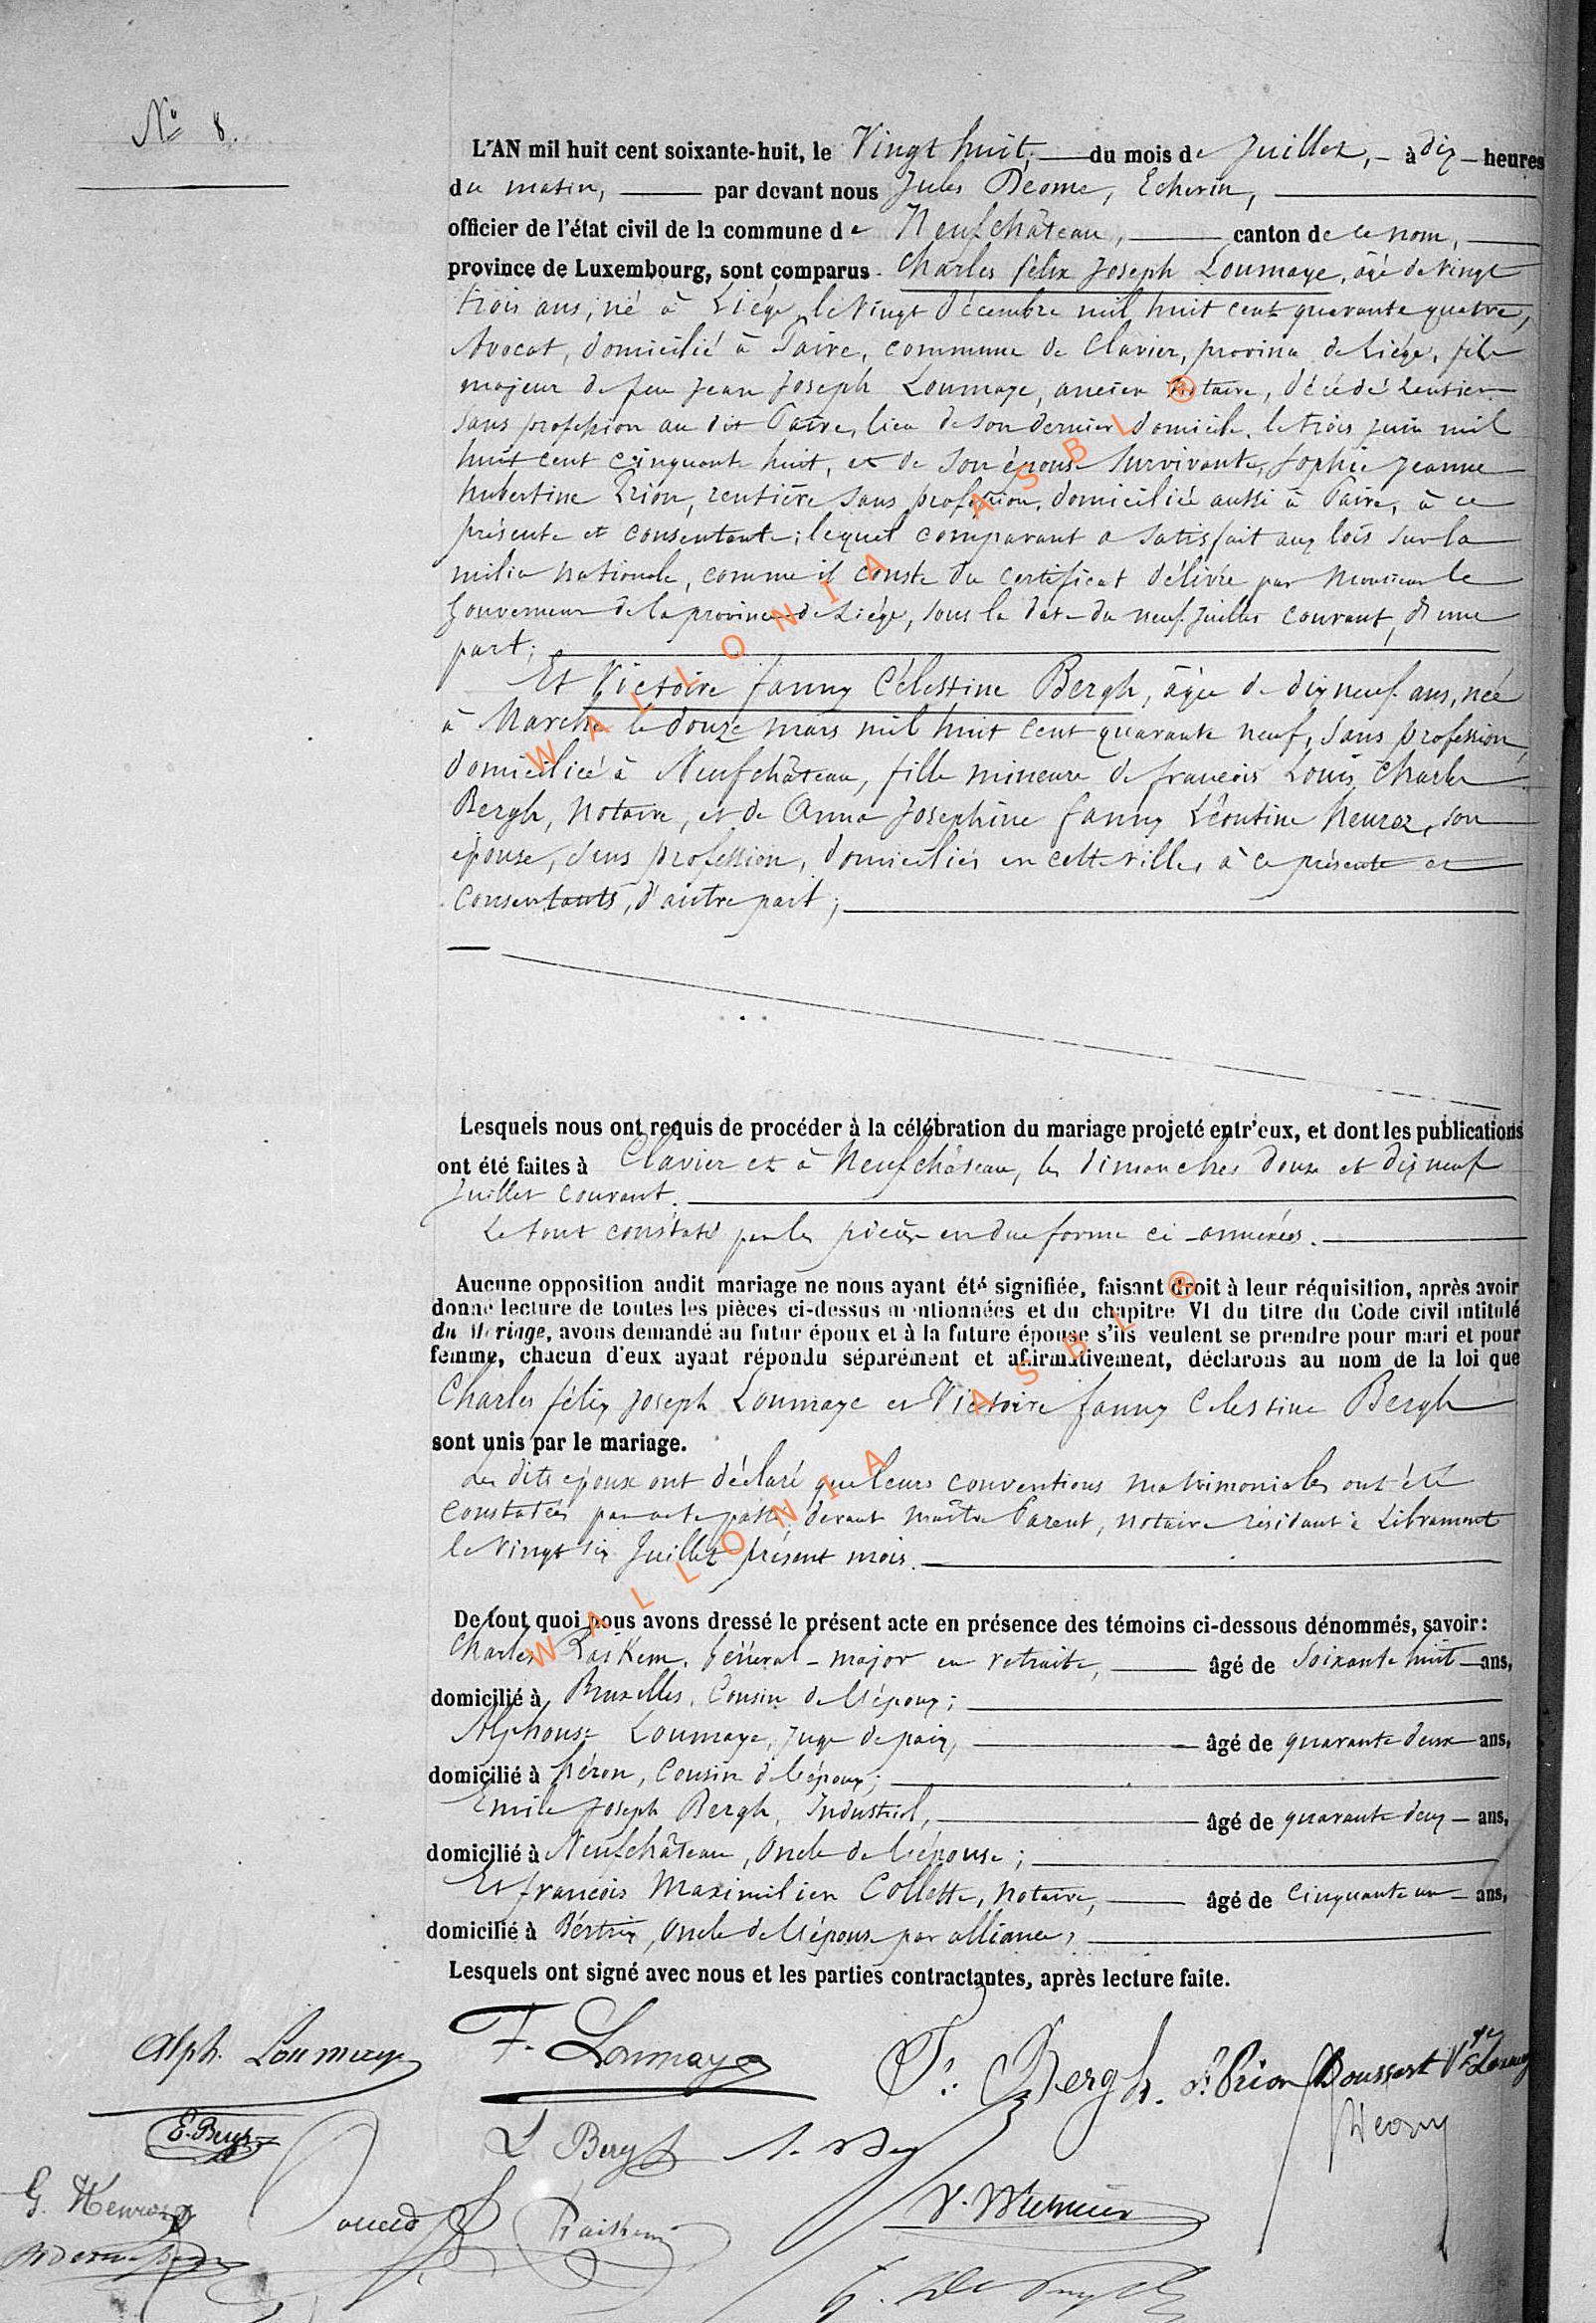 N° 8.
L'AN mil huit cent soixante-huit, le Vingt huit, du mois de Juillet, à dix heures
du matin, par devant nous Jules Deome, Echevin,
officier de l'état civil de la commune de Neufchâteau, canton de ce nom,
province de Luxembourg, sont comparus Charles félix Joseph Loumaye, âgé de vingt
trois ans, né à Liége, le vingt décembre mil huit cent quarante quatre,
Avocat, domicilié à Pair, commune de Clavier, province de Liége, fils
majeur de feu Jean Joseph Loumaye, ancien notaire, décédé rentier
sans profession au dit Paire, lieu de son dernier domicile, le trois juin mil
huit cent cinquante huit, et de son épouse survivante, Sophie Jeanne
hubertine Prion, rentière sans profession, domiciliée aussi à Paire, à ce
présente et consentante; lequel comparant a satisfait aux lois sur la
milice nationale, comme il conste du certificat délivré par Monsieur le
Gouverneur de la province de Liége, sous la date du neuf juillet courant, d'une
part;
Et Victoire fanny Célestine Bergh, âgée de dix neuf ans, née
à Marche le douze mars mil huit cent quarante neuf, sans profession,
domiciliée à Neufchâteau, fille mineure de françois Louis Charles
Bergh, notaire, et de Anne Josephine fanny Léontine henroz, son
épouse, sans profession, domiciliés en cette ville, à ce présents et
consentants, d'autre part;
Lesquels nous ont requis de procéder à la célébration du mariage projeté entr'eux, et dont les publications
ont été faites à Clavier et à Neufchâteau, les dimanches douze et dix neuf
Juillet courant.
Le tout constaté par les pièces en due forme ci-annexées.
Aucune opposition audit mariage ne nous ayant été signifiée, faisant droit à leur réquisition, après avoir
donné lecture de toutes les pièces ci-dessus mentionnées et du chapitre VI du titre du Code civil intitulé
du Mariage, avons demandé au futur époux et à la future épouse s'ils veulent se prendre pour mari et pour
femme, chacun d'eux ayant répondu séparément et affirmativement, déclarons au nom de la loi que
Charles félix Joseph Loumaye et Victoire fanny Celestine Bergh
sont unis par le mariage.
Les dits époux ont déclaré que leurs conventions matrimoniales ont été
constatées par acte passé devant maître Parent, notaire résidant à Libramont
le vingt six Juillet présent mois.
De tout quoi nous avons dressé le présent acte en présence des témoins ci-dessous dénommés, savoir:
Charles Raikem, Général-major en retraite, âgé de soixante huit ans,
domicilié à Bruxelles, Cousin de l'époux;
Alphonse Loumaye, juge de paix, âgé de quarante deux ans,
domicilié à héron, Cousin de l'époux;
Emile Joseph Bergh, Industriel, âgé de quarante deux ans,
domicilié à Neufchâteau, Oncle de l'épouse;
Et françois Maximilien Collette, notaire, âgé de cinquante un ans,
domicilié à Bertrix, Oncle de l'épouse par alliance,
Lesquels ont signé avec nous et les parties contractantes, après lecture faite.
Alph. Loumaye F. Loumaye F. Bergh. S. Prion
E. Bergh L Bergh
G. Henroz Raikem
WALLONIA ASBL ®
WALLONIA ASBL ®